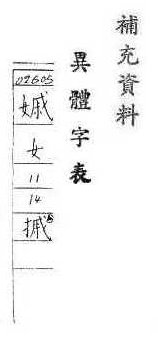 補充資料
異體字表
02605
㛱
女
11
14
摵